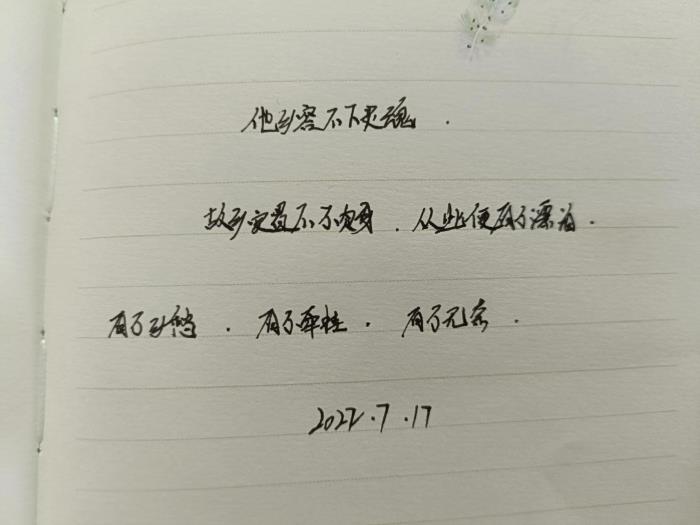 他乡容不下灵魂.
故乡安置不了肉身.从此便有了漂泊.
有了乡愁.有了牵挂.有了无奈.
2022.7.17